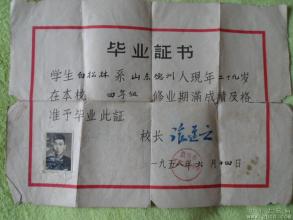 毕业証书
学生白松林系山东德州人現年二十九岁
在本校四年级修业期滿成績及格
准予毕业此証
校长
一九五八年六月十四日